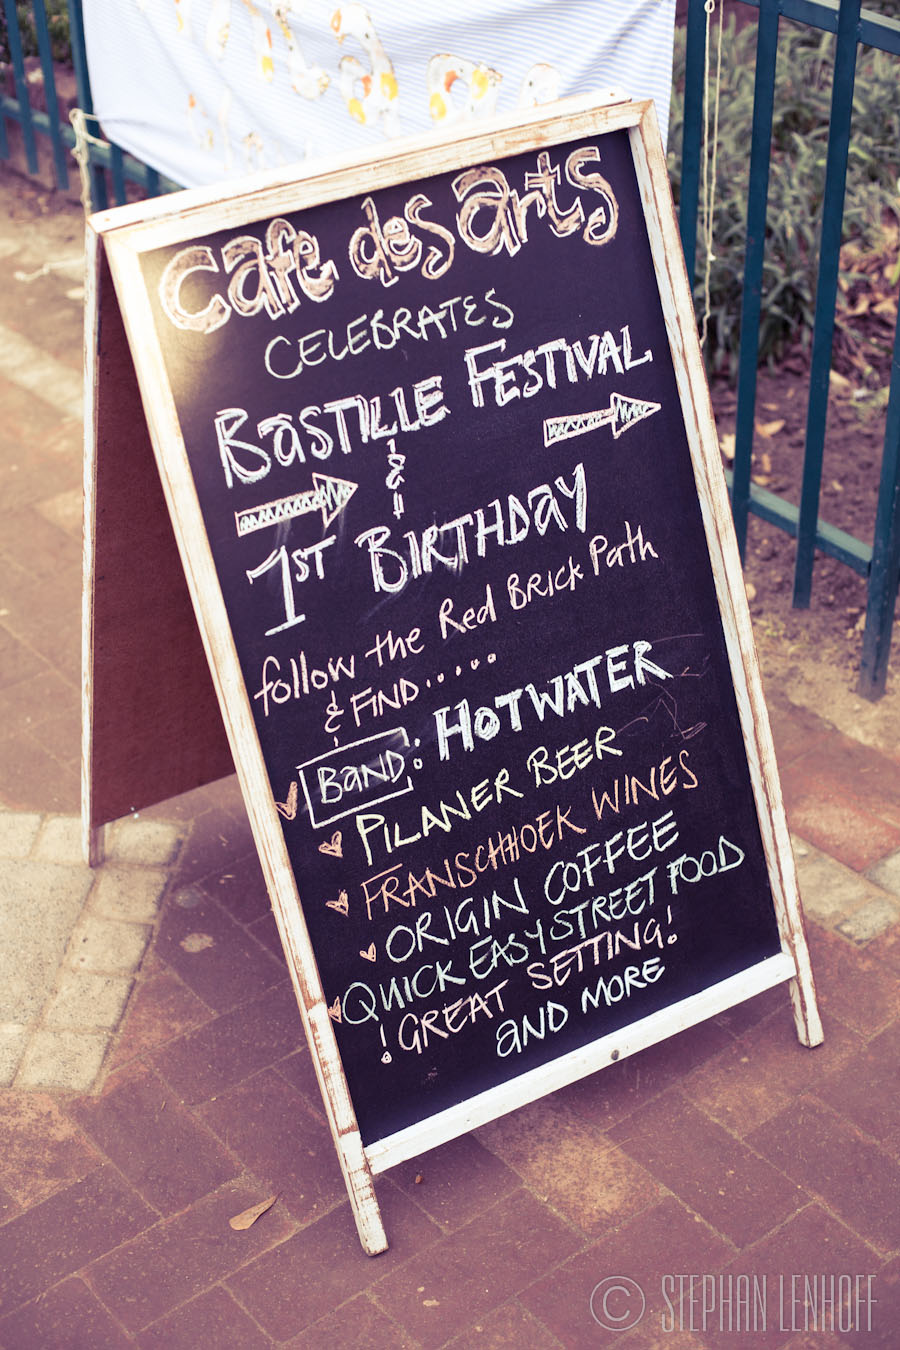 cafe des arts
CELEBRATES
BaSTILLE FESTIVAL
&
1ST BIRTHDay
follow the Red BRICK Path
& FIND.....
BAND: HOTWATER
PILANER BEER
FRANSCHHOEK WINES
ORIGIN COFFEE
QUICK EASY STREET FOOD
!GREAT SETTING!
AND MORE
© STEPHAN LENHOFF